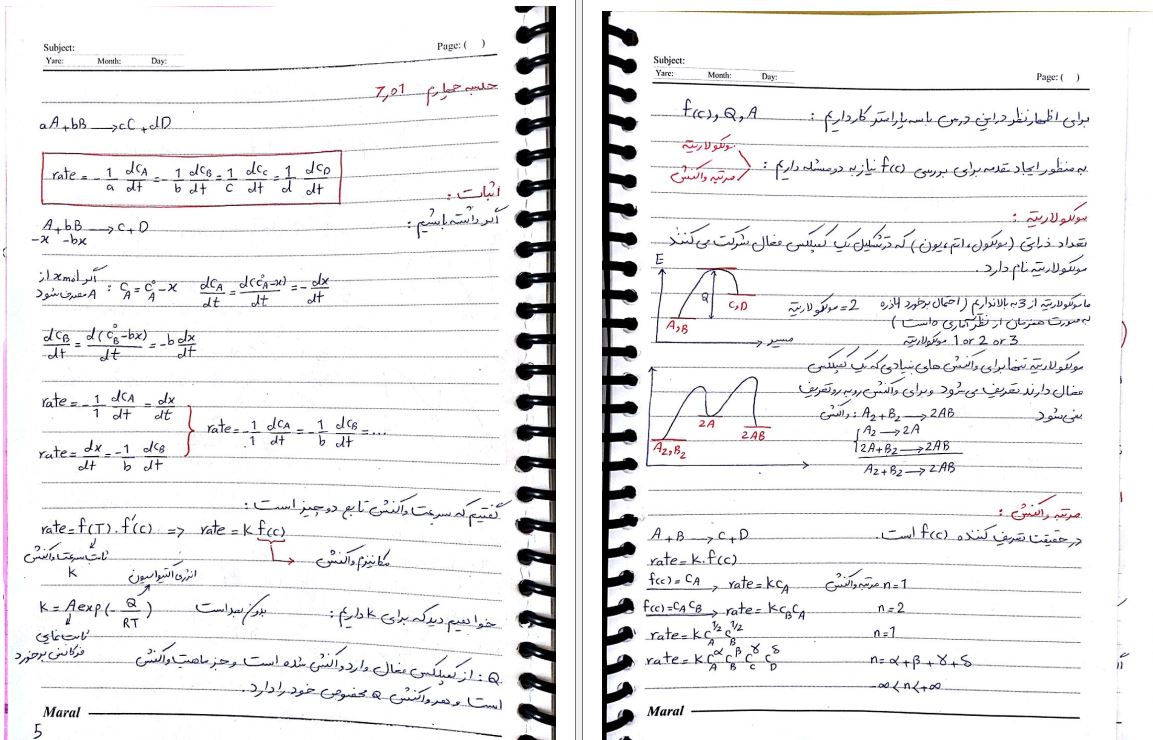 Subject:
Page: ( )
Yare: Month: Day:
جلسه چهارم 7,01
aA + bB → cC + dD
rate = -1/a dCA/dt = -1/b dCB/dt = 1/c dCc/dt = 1/d dCD/dt
اثبات :
اگر داشته باشیم :
A + bB → C + D
-x -bx
اگر x mol از A مصرف شود : CA = C°A - x dCA/dt = d(C°A - x)/dt = -dx/dt
dCB/dt = d(C°B - bx)/dt = -b dx/dt
rate = -1/1 dCA/dt = dx/dt
rate = -1/1 dCA/dt = -1/b dCB/dt = ...
rate = dx/dt = -1/b dCB/dt
گفتیم که سرعت واکنش تابع دو چیز است :
rate = f(T) . f'(c) => rate = k f(c)
ثابت سرعت واکنش k
مکانیزم واکنش
انرژی اکتیواسیون
خواهیم دید که برای k داریم : k = A exp(-Q/RT) بدون بعد است
ثابت نمایی
فرکانس برخورد
Q : از کمپلکس فعال وارد واکنش شده است و جز ماهیت واکنش
است و هر واکنش Q مخصوص خود را دارد.
Maral
5
Subject:
Yare: Month: Day:
Page: ( )
برای اظهار نظر در این درس با سه پارامتر کار داریم : f(c), Q, A
به منظور ایجاد مقدمه برای بررسی f(c) نیاز به دو مسئله داریم :
مولکولاریته
مرتبه واکنش
مولکولاریته :
تعداد ذراتی (مولکول، اتم، یون) که در تشکیل یک کمپلکس فعال شرکت می کنند
مولکولاریته نام دارد .
E
Q
C,D
A,B
مسیر
مولکولاریته = 2
ما مولکولاریته از 3 به بالا نداریم ( احتمال برخورد 4 ذره
به صورت همزمان از نظر آماری 0 است )
مولکولاریته 1 or 2 or 3
مولکولاریته تنها برای واکنش های بنیادی که یک کمپلکس
فعال دارند تعریف می شود و برای واکنش روبه رو تعریف
نمی شود
واکنش : A2 + B2 → 2AB
A2 → 2A
2A + B2 → 2AB
A2 + B2 → 2AB
A2, B2
2A
2AB
مرتبه واکنش :
در حقیقت تعریف کننده f(c) است.
A + B → C + D
rate = k . f(c)
f(c) = CA → rate = kCA مرتبه واکنش n=1
f(c) = CACB → rate = kCBCA n=2
rate = k CA^1/2 CB^1/2 n=1
rate = k CA^α CB^β CC^γ CD^δ n = α+β+γ+δ
-∞ < n < +∞
Maral